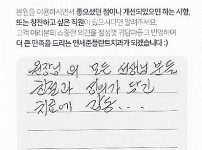 본원을 이용하시면서 좋으셨던 점이나 개선되었으면 하는 사항,
또는 칭찬하고 싶은 직원이 있으시다면 알려주세요.
고객 여러분의 소중한 의견을 정성껏 귀담아듣고 반영하여
더 큰 만족을 드리는 연세준플란트치과가 되겠습니다 :)
원장님 외 모든 선생님 분들
친절과 성의가 담긴
치료에 감동...